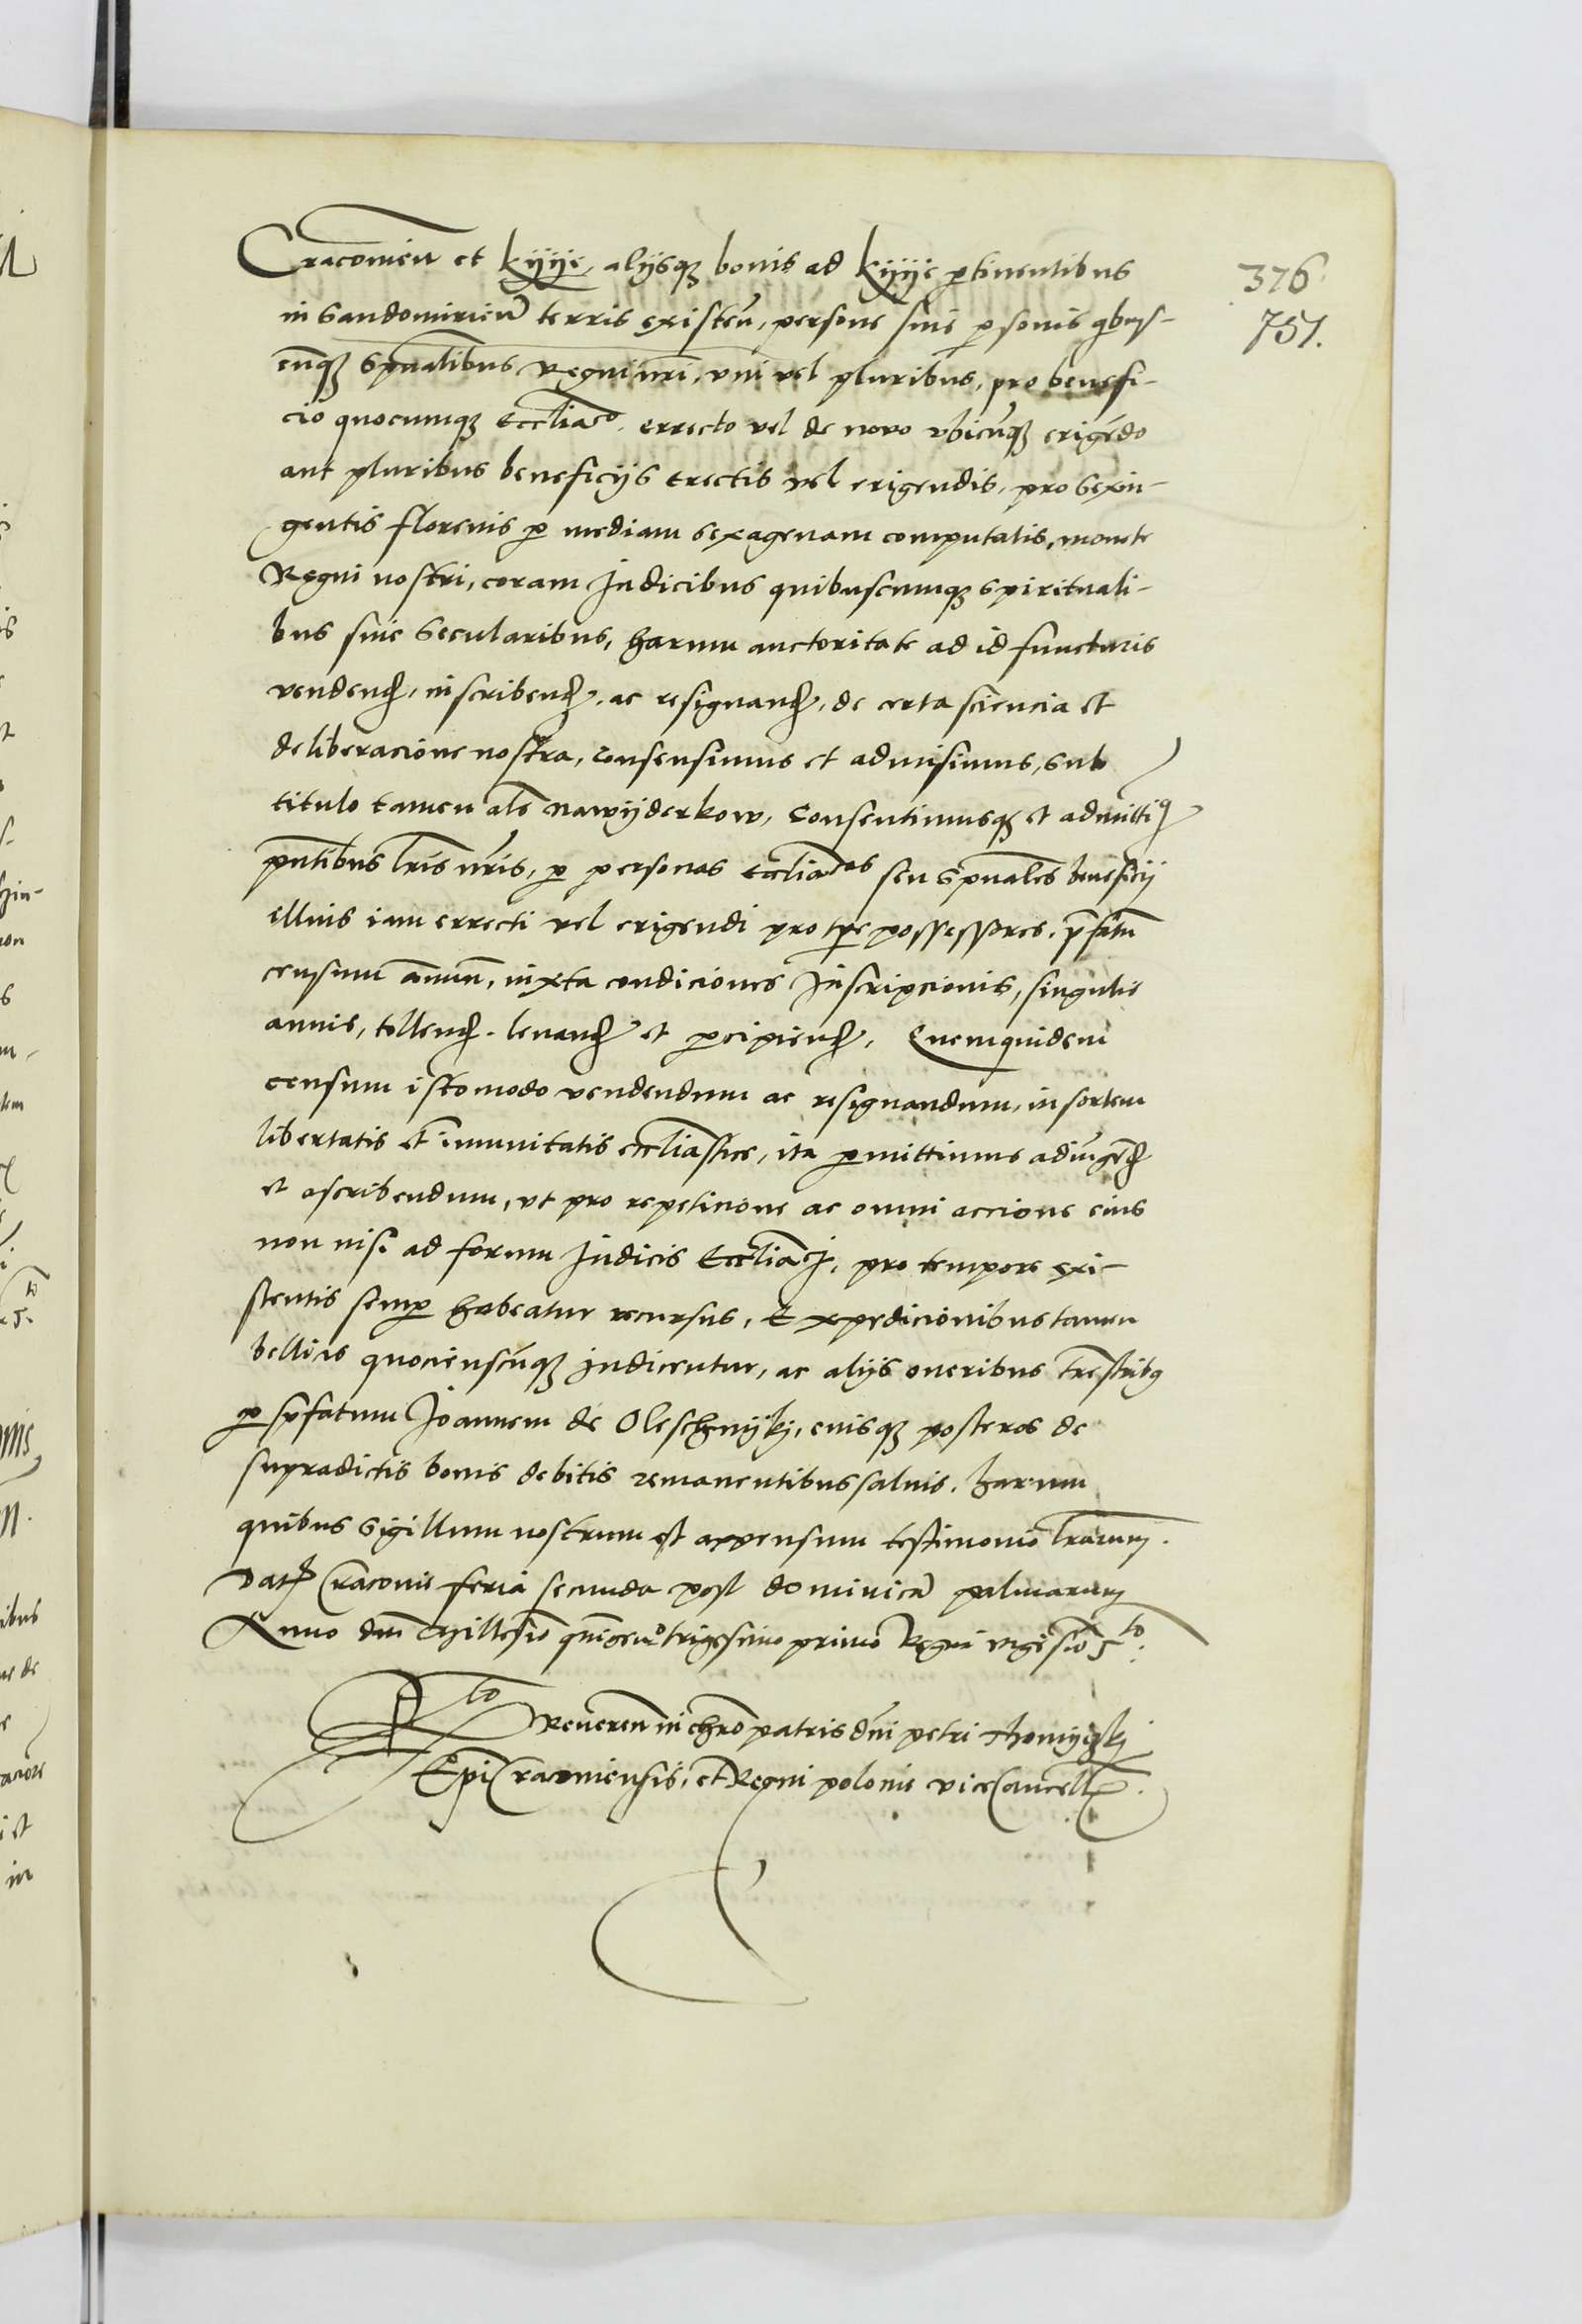 Cracovien et kyyije, alijsqȝ bonis ad kyyije ꝑtinentibus
376
in Sandomirien terris existeñ, persone siue ꝑsonis qͥbus-
751.
cūqȝ Spualibus Regni nri, vni vel pluribus, pro benefi-
cio quocumqȝ Eccliaco. errecto vel de novo vbicūqȝ erigēdo
aut pluribus beneficijs erectis vel erigendis, pro Sexin-
gentis florenis ꝑ mediam sexagenam computatis, monete
Regni nostri, coram Judicibus quibuscumqȝ spirituali-
bus siue Secularibus, harum auctoritate ad id functuris
vendend, inscribend, ac resignand, de certa sciencia et
deliberacione nostra, consensimus et admisimus, sub
titulo tamen als nawyderkow, Consentimusqȝ et admittiꝰ
pntibus lris nris, ꝑ personas eccliacas seu Spuales beneficij
illius iam errecti vel erigendi pro tpe possessores. pfatū
censum annuū, iuxta condiciones Inscripcionis, singulis
annis, tollend. leuand et ꝑcipiend, Quemquidem
censum istomodo vendendum ac resignandum, in sortem
libertatis et imunitatis eccliastice, ita ꝑmittimus adiūgēd
et ascribendum, vt pro repeticione ac omni accione eius
non nisi ad forum Judicis Eccliaci, pro tempore exi-
stentis semꝑ habeatur recursus, Expedicionibus tamen
bellicis quocienscūqȝ indicentur, ac alijs oneribus trestribꝰ
ꝑ pfatum Joannem de Oleschnijkj, eiusqȝ posteros de
supradictis bonis debitis remanentibus saluis. harum
quibus Sigillum nostrum est appensum testimonio lrarum.
Dat Cracouie feria secunda post dominicā palmarum
Anno dni Millesio quigeno trigesimo primo Regni vigesio 5to.
Rto Reueren in chro patris dni petri thomijczkj
Epi Cracouiensis, et Regni polonie viceCancell.